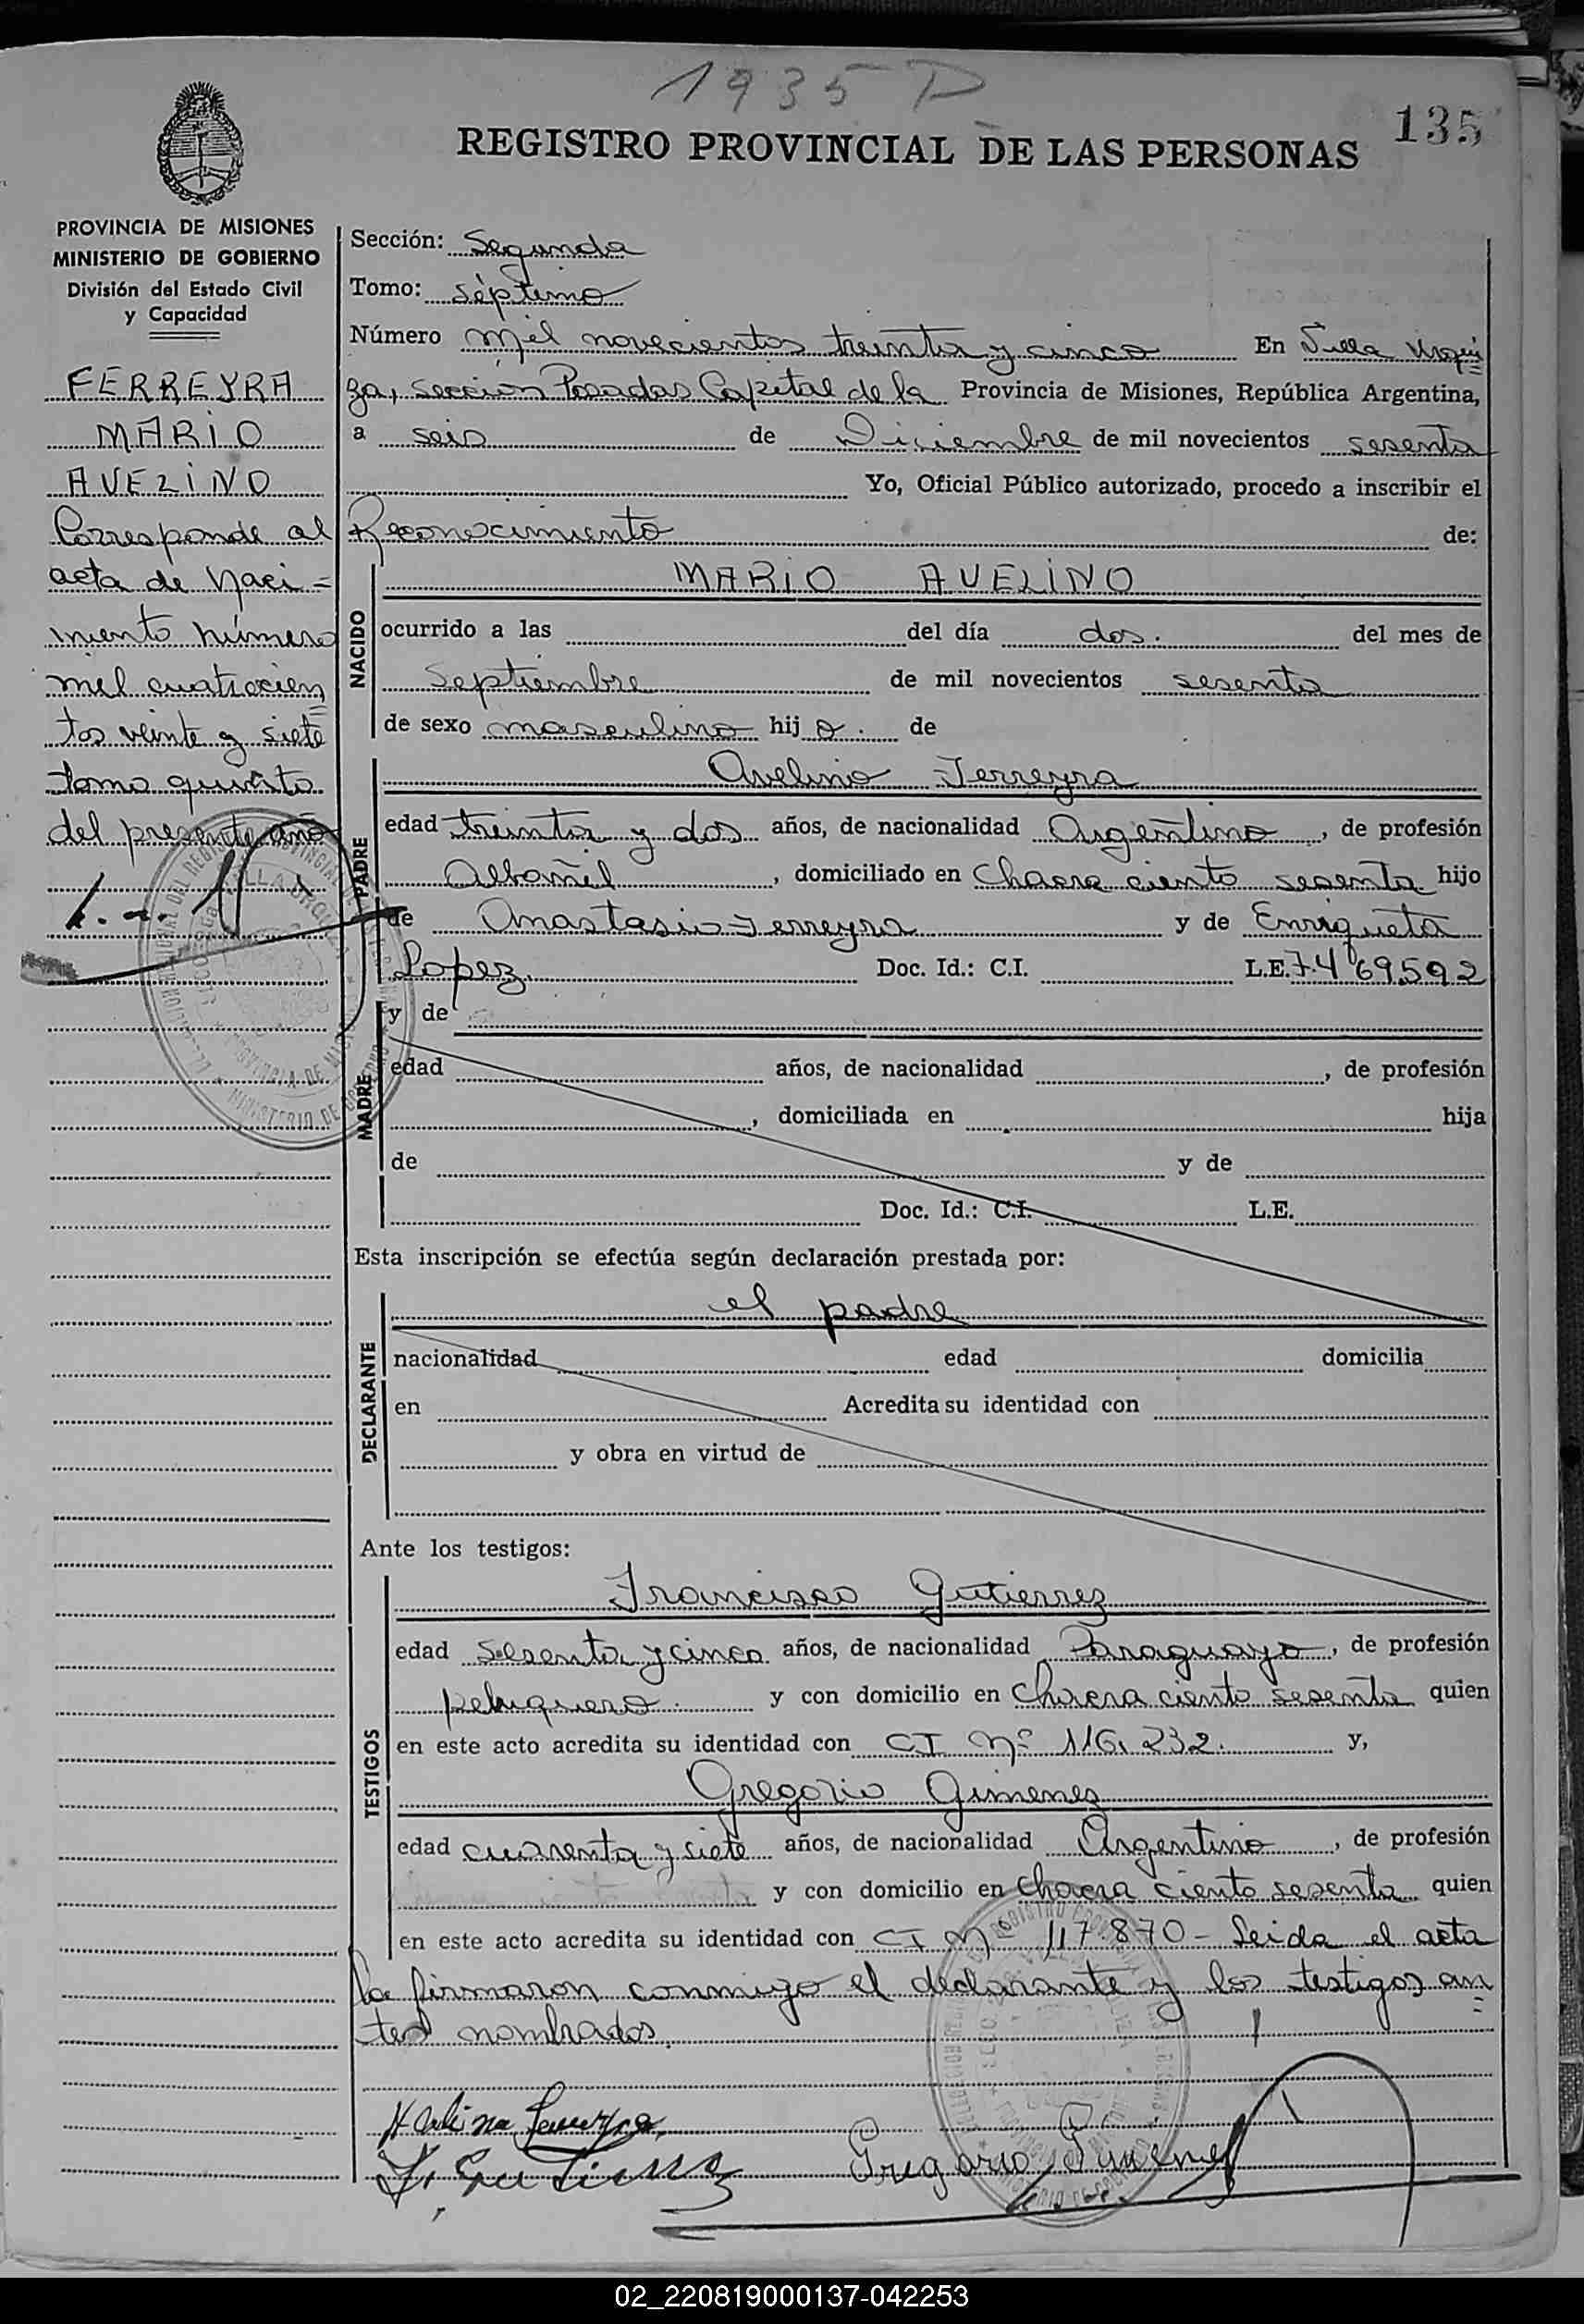 1935 D
135
REGISTRO PROVINCIAL DE LAS PERSONAS
PROVINCIA DE MISIONES
MINISTERIO DE GOBIERNO
División del Estado Civil
y Capacidad
FERREYRA
MARIO
AVELINO
Corresponde al
acta de Naci=
miento número
mil cuatrocien
tos veinte y siete
tomo quinto
del presente año
Sección: Segunda
Tomo: séptimo
Número mil novecientos treinta y cinco En Villa Urqui
za, sección Posadas Capital de la Provincia de Misiones, República Argentina,
a seis de Diciembre de mil novecientos sesenta
Yo, Oficial Público autorizado, procedo a inscribir el
Reconocimiento de:
NACIDO
MARIO AVELINO
ocurrido a las del día dos. del mes de
Septiembre de mil novecientos sesenta
de sexo masculino hijo. de
PADRE
Avelino Ferreyra
edad treinta y dos años, de nacionalidad Argentino, de profesión
Albañil, domiciliado en Chacra ciento sesenta hijo
de Anastasio Ferreyra y de Enriqueta
Lopez. Doc. Id.: C.I. L.E. 7.469.592
MADRE
y de
edad años, de nacionalidad , de profesión
, domiciliada en hija
de y de
Doc. Id.: C.I. L.E.
Esta inscripción se efectúa según declaración prestada por:
DECLARANTE
el padre
nacionalidad edad domicilia
en Acredita su identidad con
y obra en virtud de
Ante los testigos:
TESTIGOS
Francisco Gutierrez
edad sesenta y cinco años, de nacionalidad Paraguayo, de profesión
peluquero. y con domicilio en Chacra ciento sesenta quien
en este acto acredita su identidad con CI Nº 116.232. y,
Gregorio Gimenez
edad cuarenta y siete años, de nacionalidad Argentino, de profesión
y con domicilio en Chacra ciento sesenta quien
en este acto acredita su identidad con CI Nº 117.870- Leida el acta
la firmaron conmigo el declarante y los testigos an
tes nombrados.
F. Gutierrez
Gregorio Gimenez
02_220819000137-042253